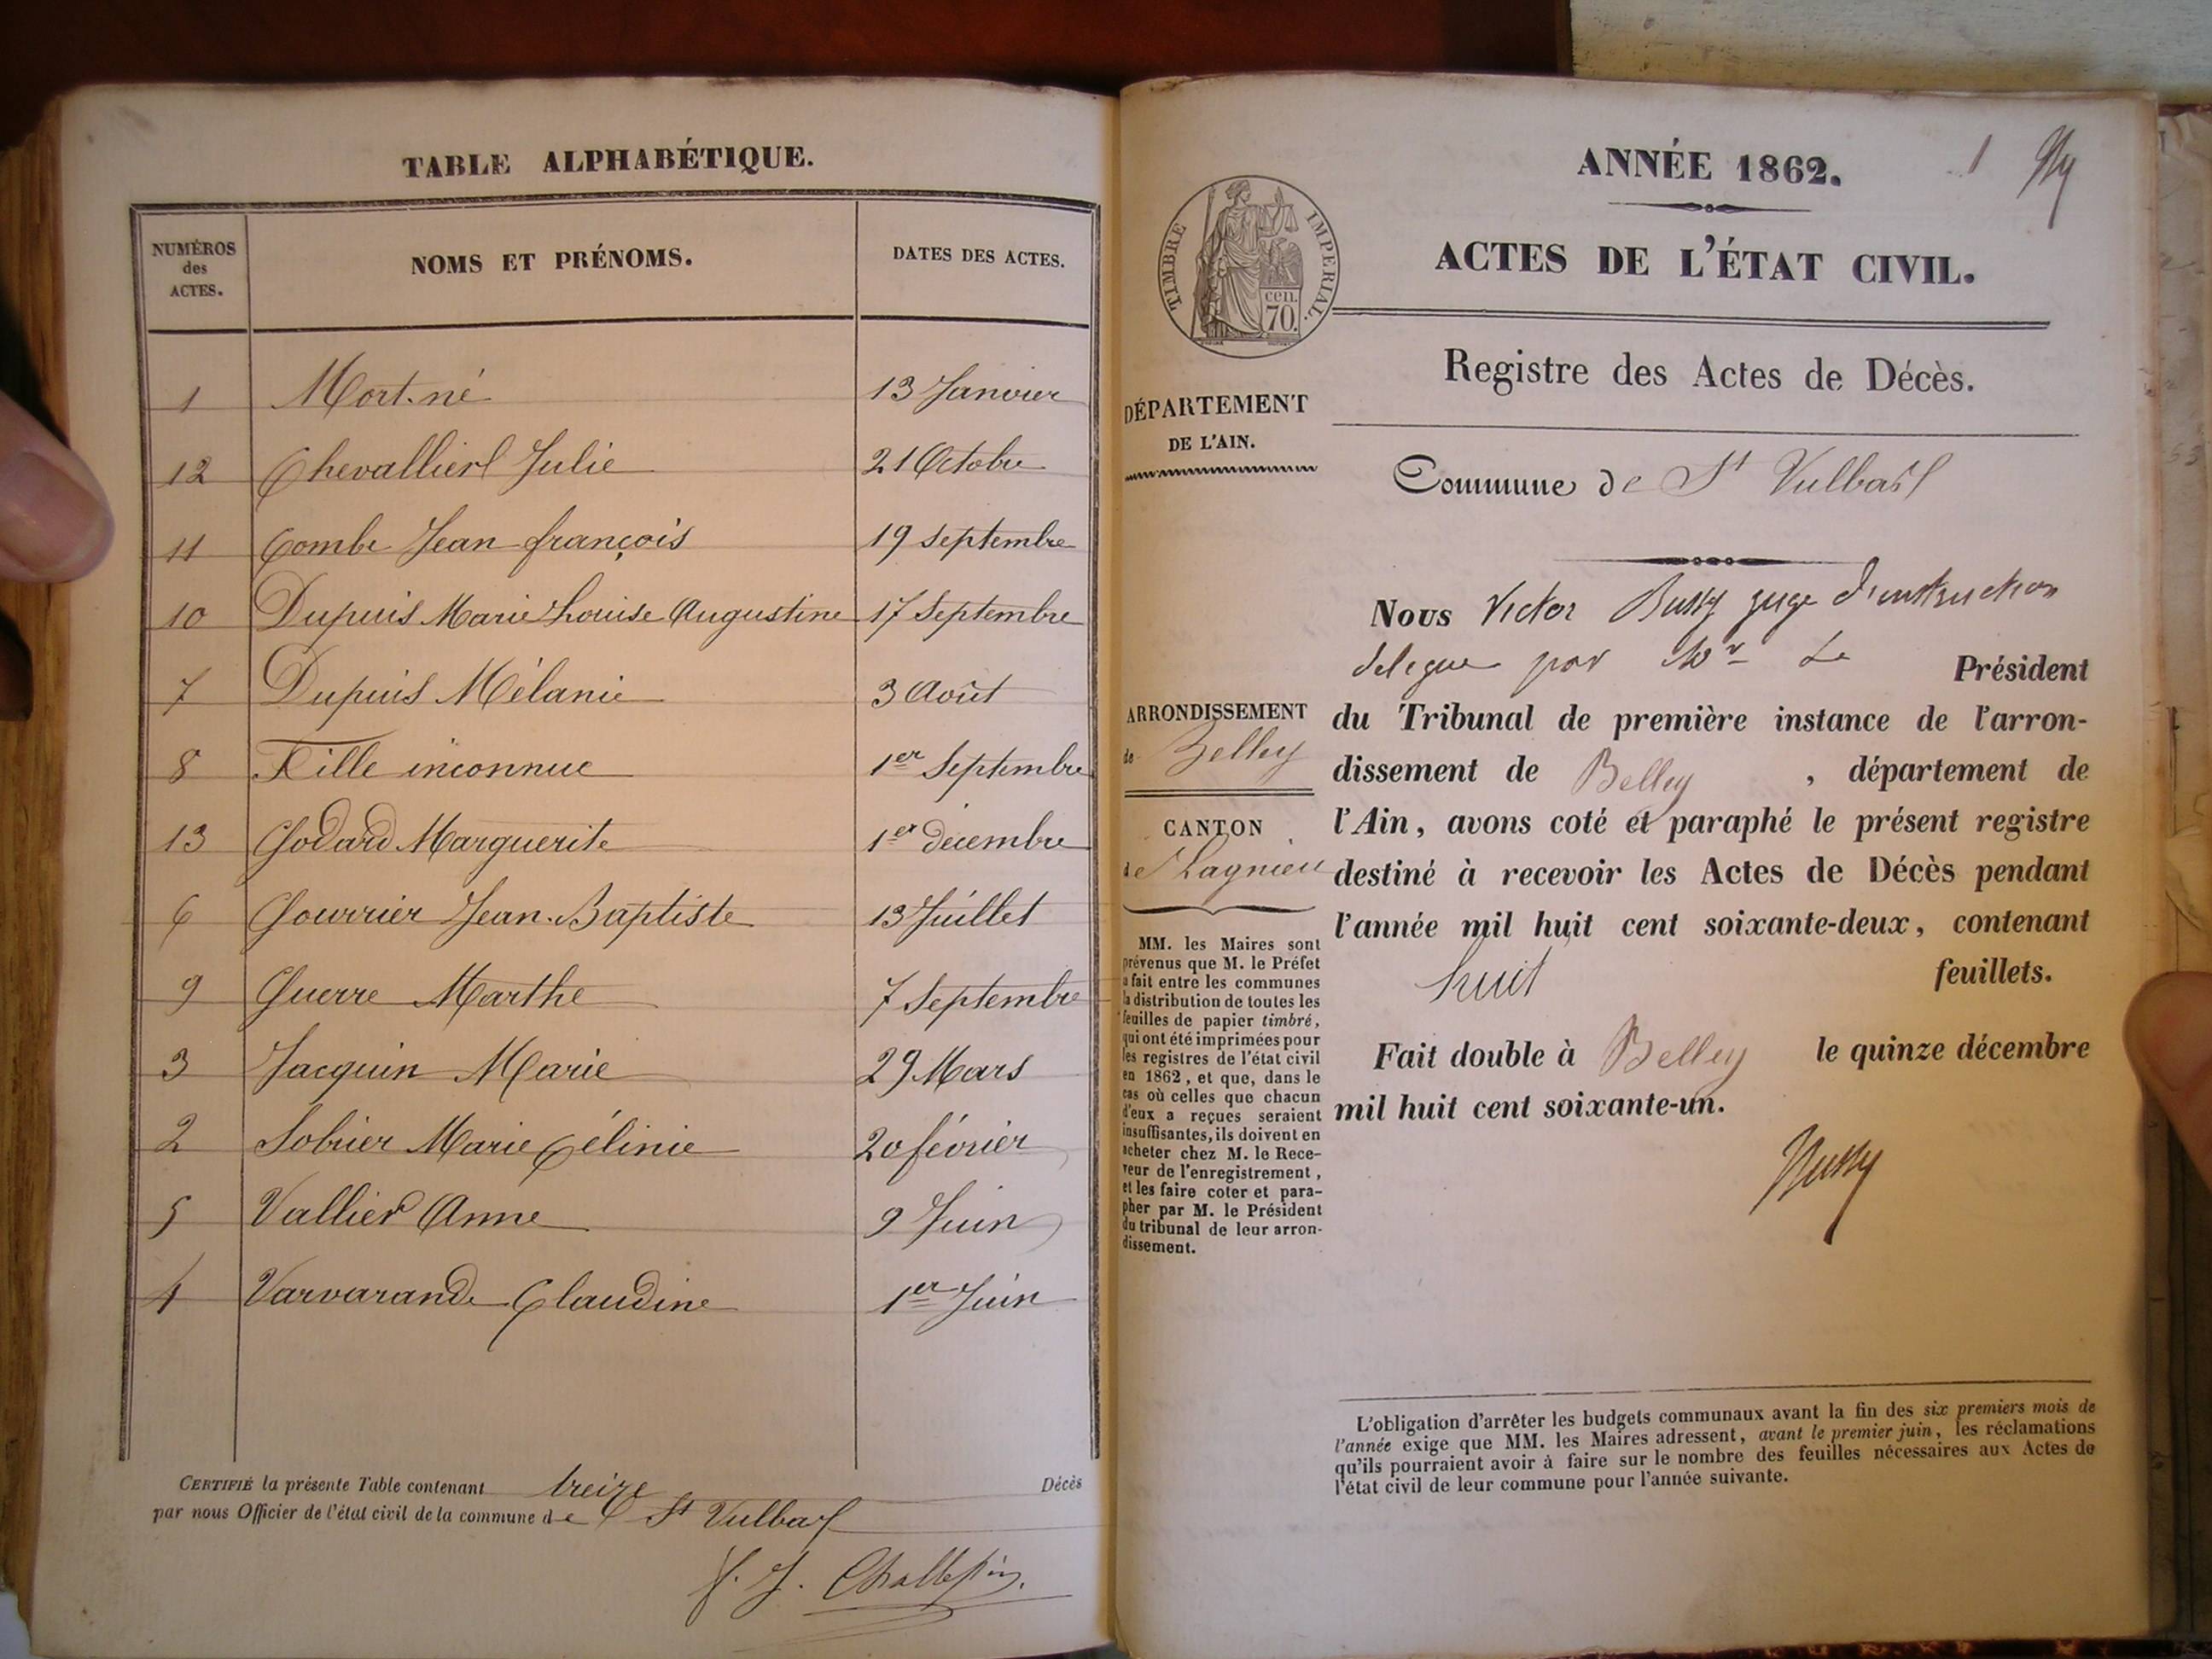 TABLE ALPHABÉTIQUE.
NUMÉROS
des
ACTES.
NOMS ET PRÉNOMS.
DATES DES ACTES.
1 Mort-né 13 Janvier
12 Chevallier Julie 21 Octobre
11 Combe Jean françois 19 Septembre
10 Dupuis Marie Louise Augustine 17 Septembre
7 Dupuis Mélanie 3 Août
8 Fille inconnue 1er Septembre
13 Godard Marguerite 1er décembre
6 Gourrier Jean-Baptiste 13 Juillet
9 Guerre Marthe 7 Septembre
3 Jacquin Marie 29 Mars
2 Sobrier Marie Célinie 20 février
5 Vallier Anne 9 Juin
4 Varvarande Claudine 1er Juin
CERTIFIÉ la présente Table contenant treize Décès
par nous Officier de l'état civil de la commune de St Vulbas
1
ANNÉE 1862.
TIMBRE IMPERIAL.
cen.
70.
ACTES DE L'ÉTAT CIVIL.
Registre des Actes de Décès.
DÉPARTEMENT
DE L'AIN.
Commune de St Vulbas
Nous Victor Bussy juge d'instruction
delegue par Mr Le Président
du Tribunal de première instance de l'arron-
dissement de Belley , département de
l'Ain, avons coté et paraphé le présent registre
destiné à recevoir les Actes de Décès pendant
l'année mil huit cent soixante-deux, contenant
huit feuillets.
Fait double à Belley le quinze décembre
mil huit cent soixante-un.
Bussy
ARRONDISSEMENT
de Belley
CANTON
de Lagnieu
MM. les Maires sont
prévenus que M. le Préfet
a fait entre les communes
la distribution de toutes les
feuilles de papier timbré,
qui ont été imprimées pour
les registres de l'état civil
en 1862, et que, dans le
cas où celles que chacun
d'eux a reçues seraient
insuffisantes, ils doivent en
acheter chez M. le Rece-
veur de l'enregistrement,
et les faire coter et para-
pher par M. le Président
du tribunal de leur arron-
dissement.
L'obligation d'arrêter les budgets communaux avant la fin des six premiers mois de
l'année exige que MM. les Maires adressent, avant le premier juin, les réclamations
qu'ils pourraient avoir à faire sur le nombre des feuilles nécessaires aux Actes de
l'état civil de leur commune pour l'année suivante.